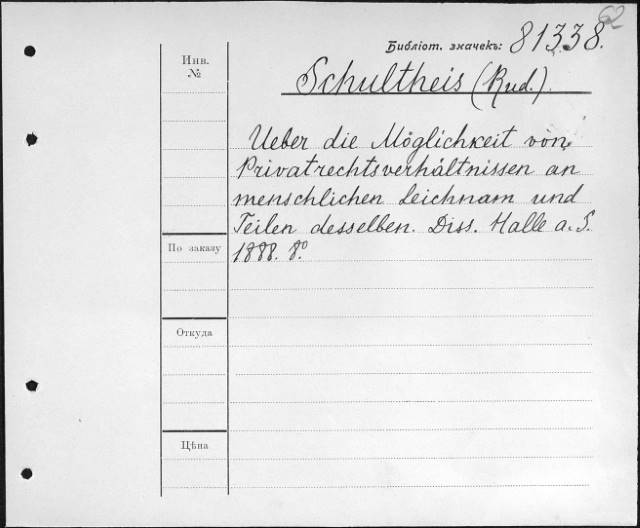 62
Библіот. значекъ: 81338.
Инв.
№
Schultheis (Rud.).
Ueber die Möglichkeit von
Privatrechtsverhältnissen an
menschlichen Leichnam und
Teilen desselben. Diss. Halle a. S.
1888. 8.º
По заказу
Откуда
Цѣна